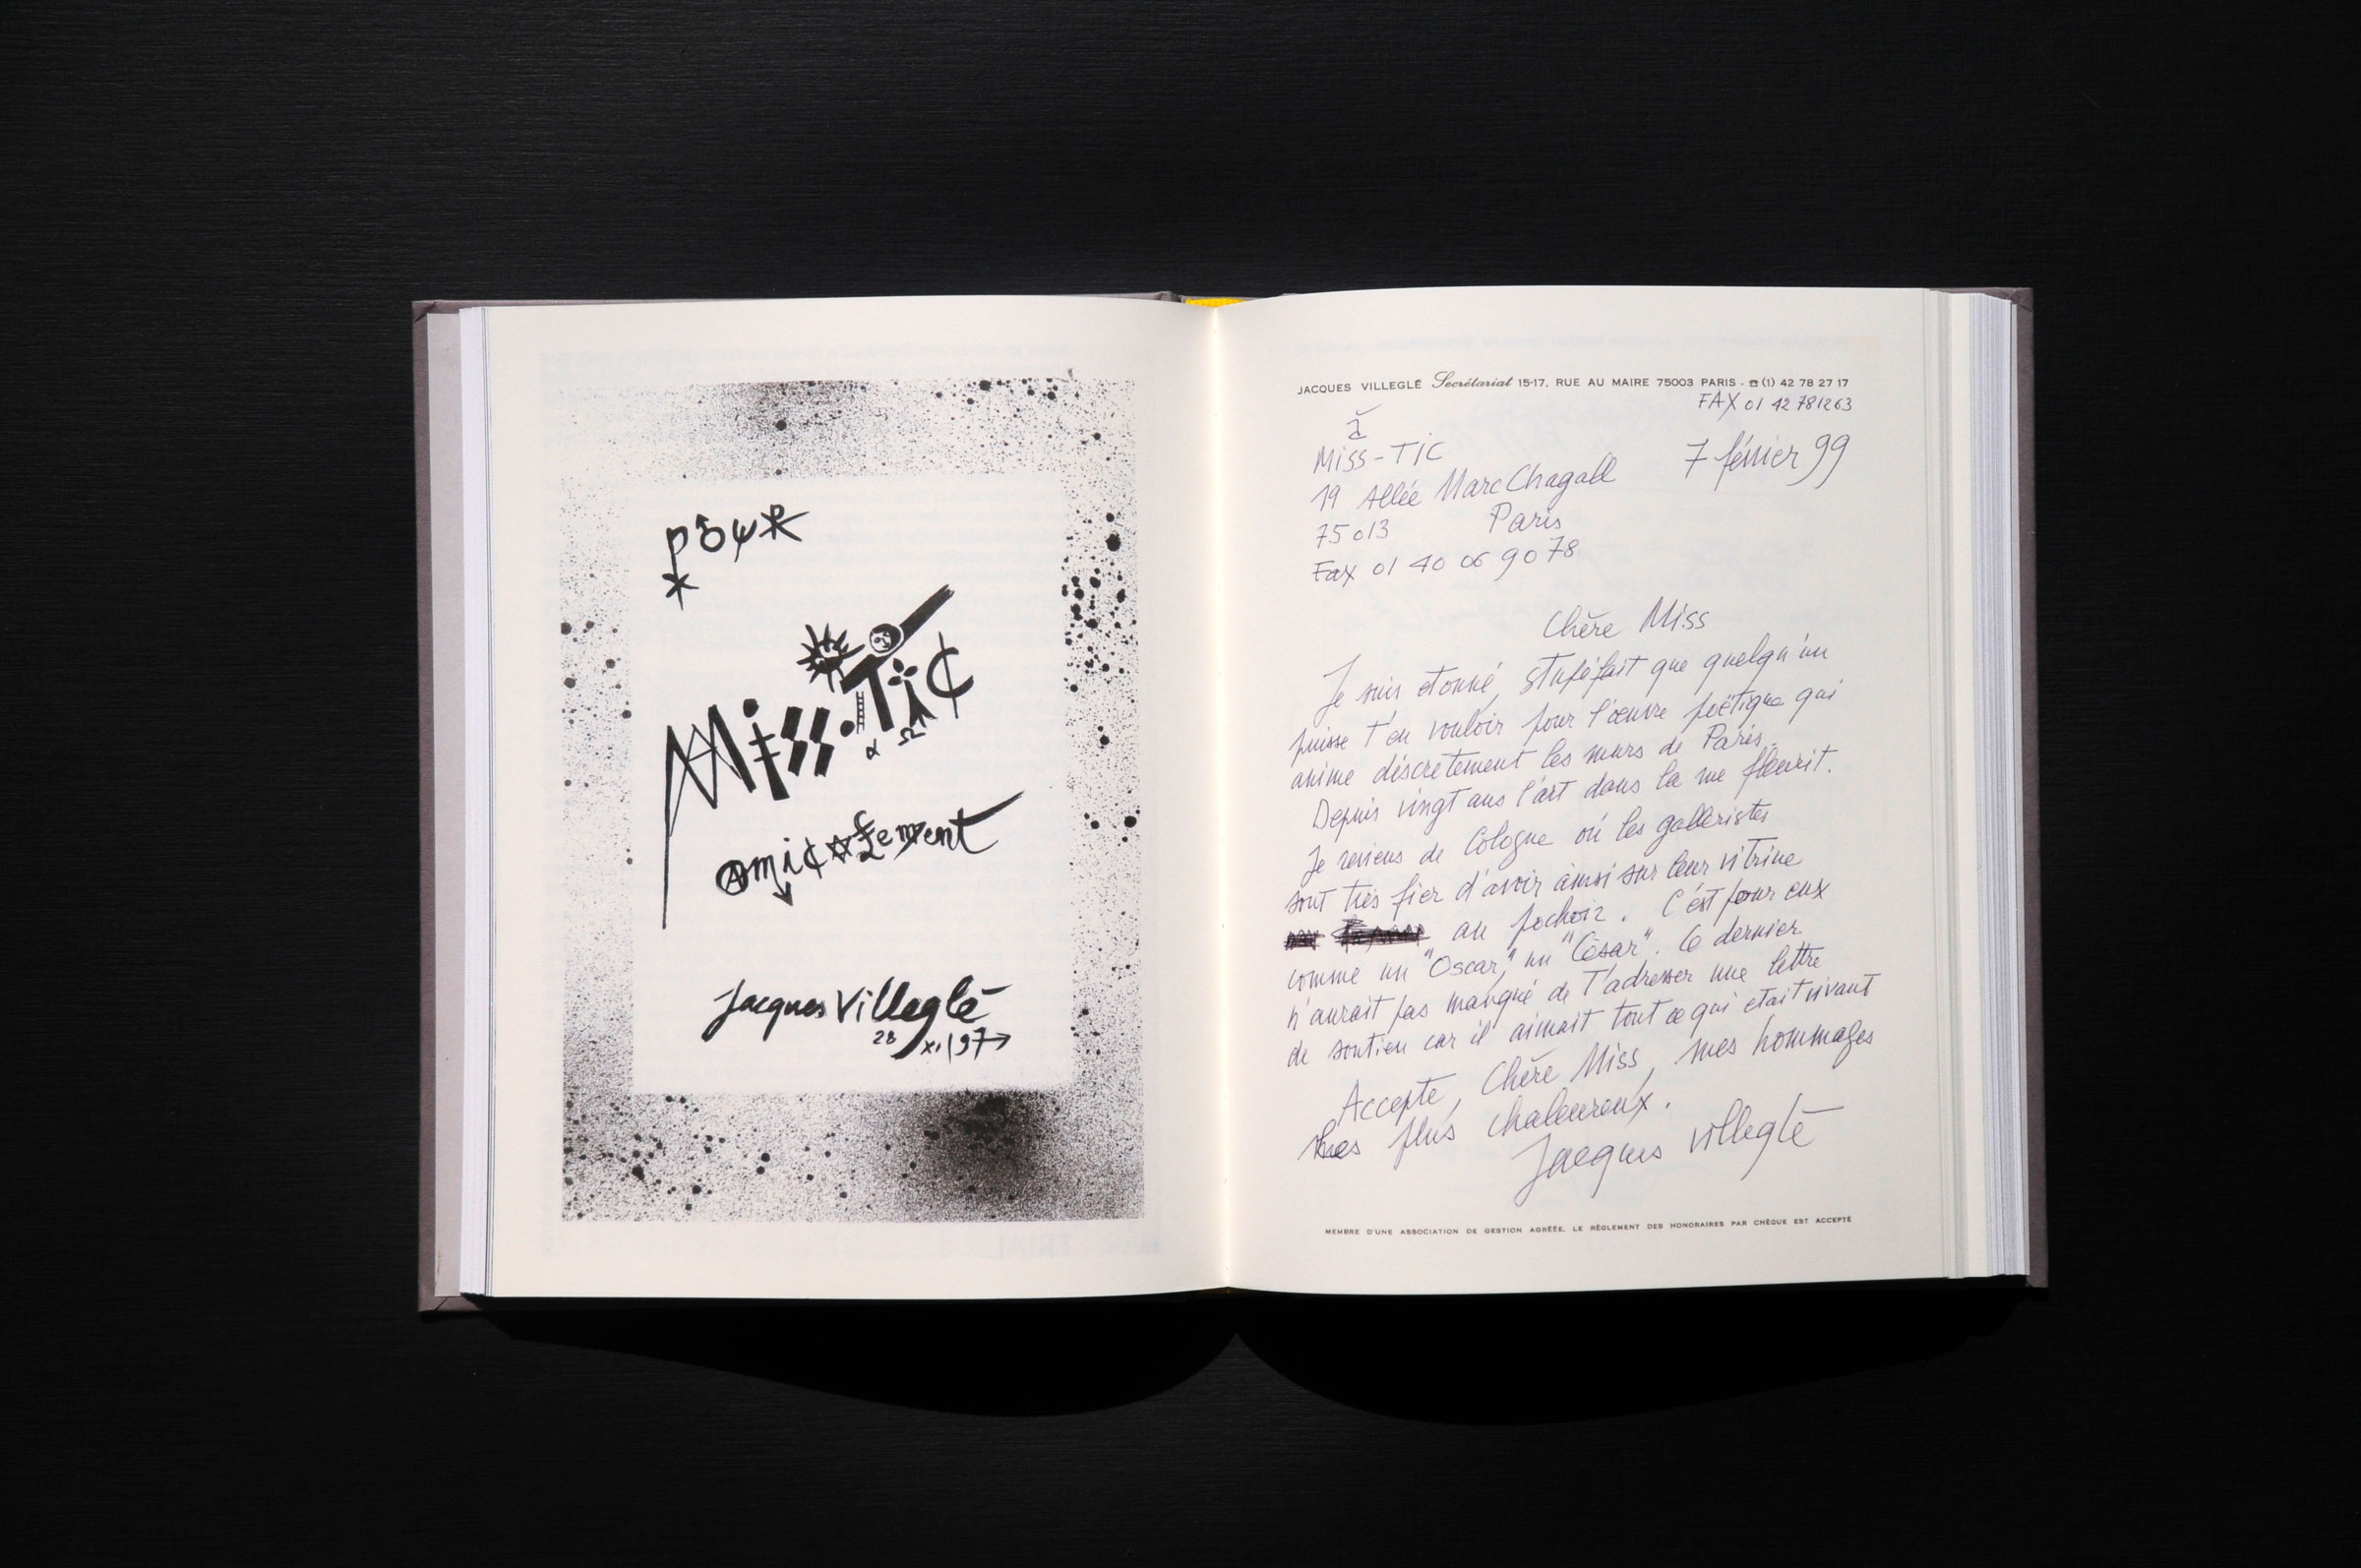 pour
Miss.Tic
amicalement
Jacques Villeglé
28 XI 97
JACQUES VILLEGLÉ Secrétariat 15-17, RUE AU MAIRE 75003 PARIS - ☎ (1) 42 78 27 17
FAX 01 42 781263
à
Miss-Tic
7 février 99
19 Allée Marc Chagall
75013 Paris
Fax 01 40 06 90 78
Chère Miss
Je suis etonné, stupéfait que quelqu'un
puisse t'en vouloir pour l'œuvre poëtique qui
anime discretement les murs de Paris.
Depuis vingt ans l'art dans la rue fleurit.
Je reviens de Cologne où les galleristes
sont très fier d'avoir ainsi sur leur vitrine
au pochoir. C'est pour eux
comme un "Oscar," un "César". Ce dernier
n'aurait pas manqué de t'adresser une lettre
de soutien car il aimait tout ce qui etait vivant
Accepte, Chère Miss, mes hommages
les plus chaleureux.
Jacques Villeglé
MEMBRE D'UNE ASSOCIATION DE GESTION AGRÉÉE, LE RÈGLEMENT DES HONORAIRES PAR CHÈQUE EST ACCEPTÉ